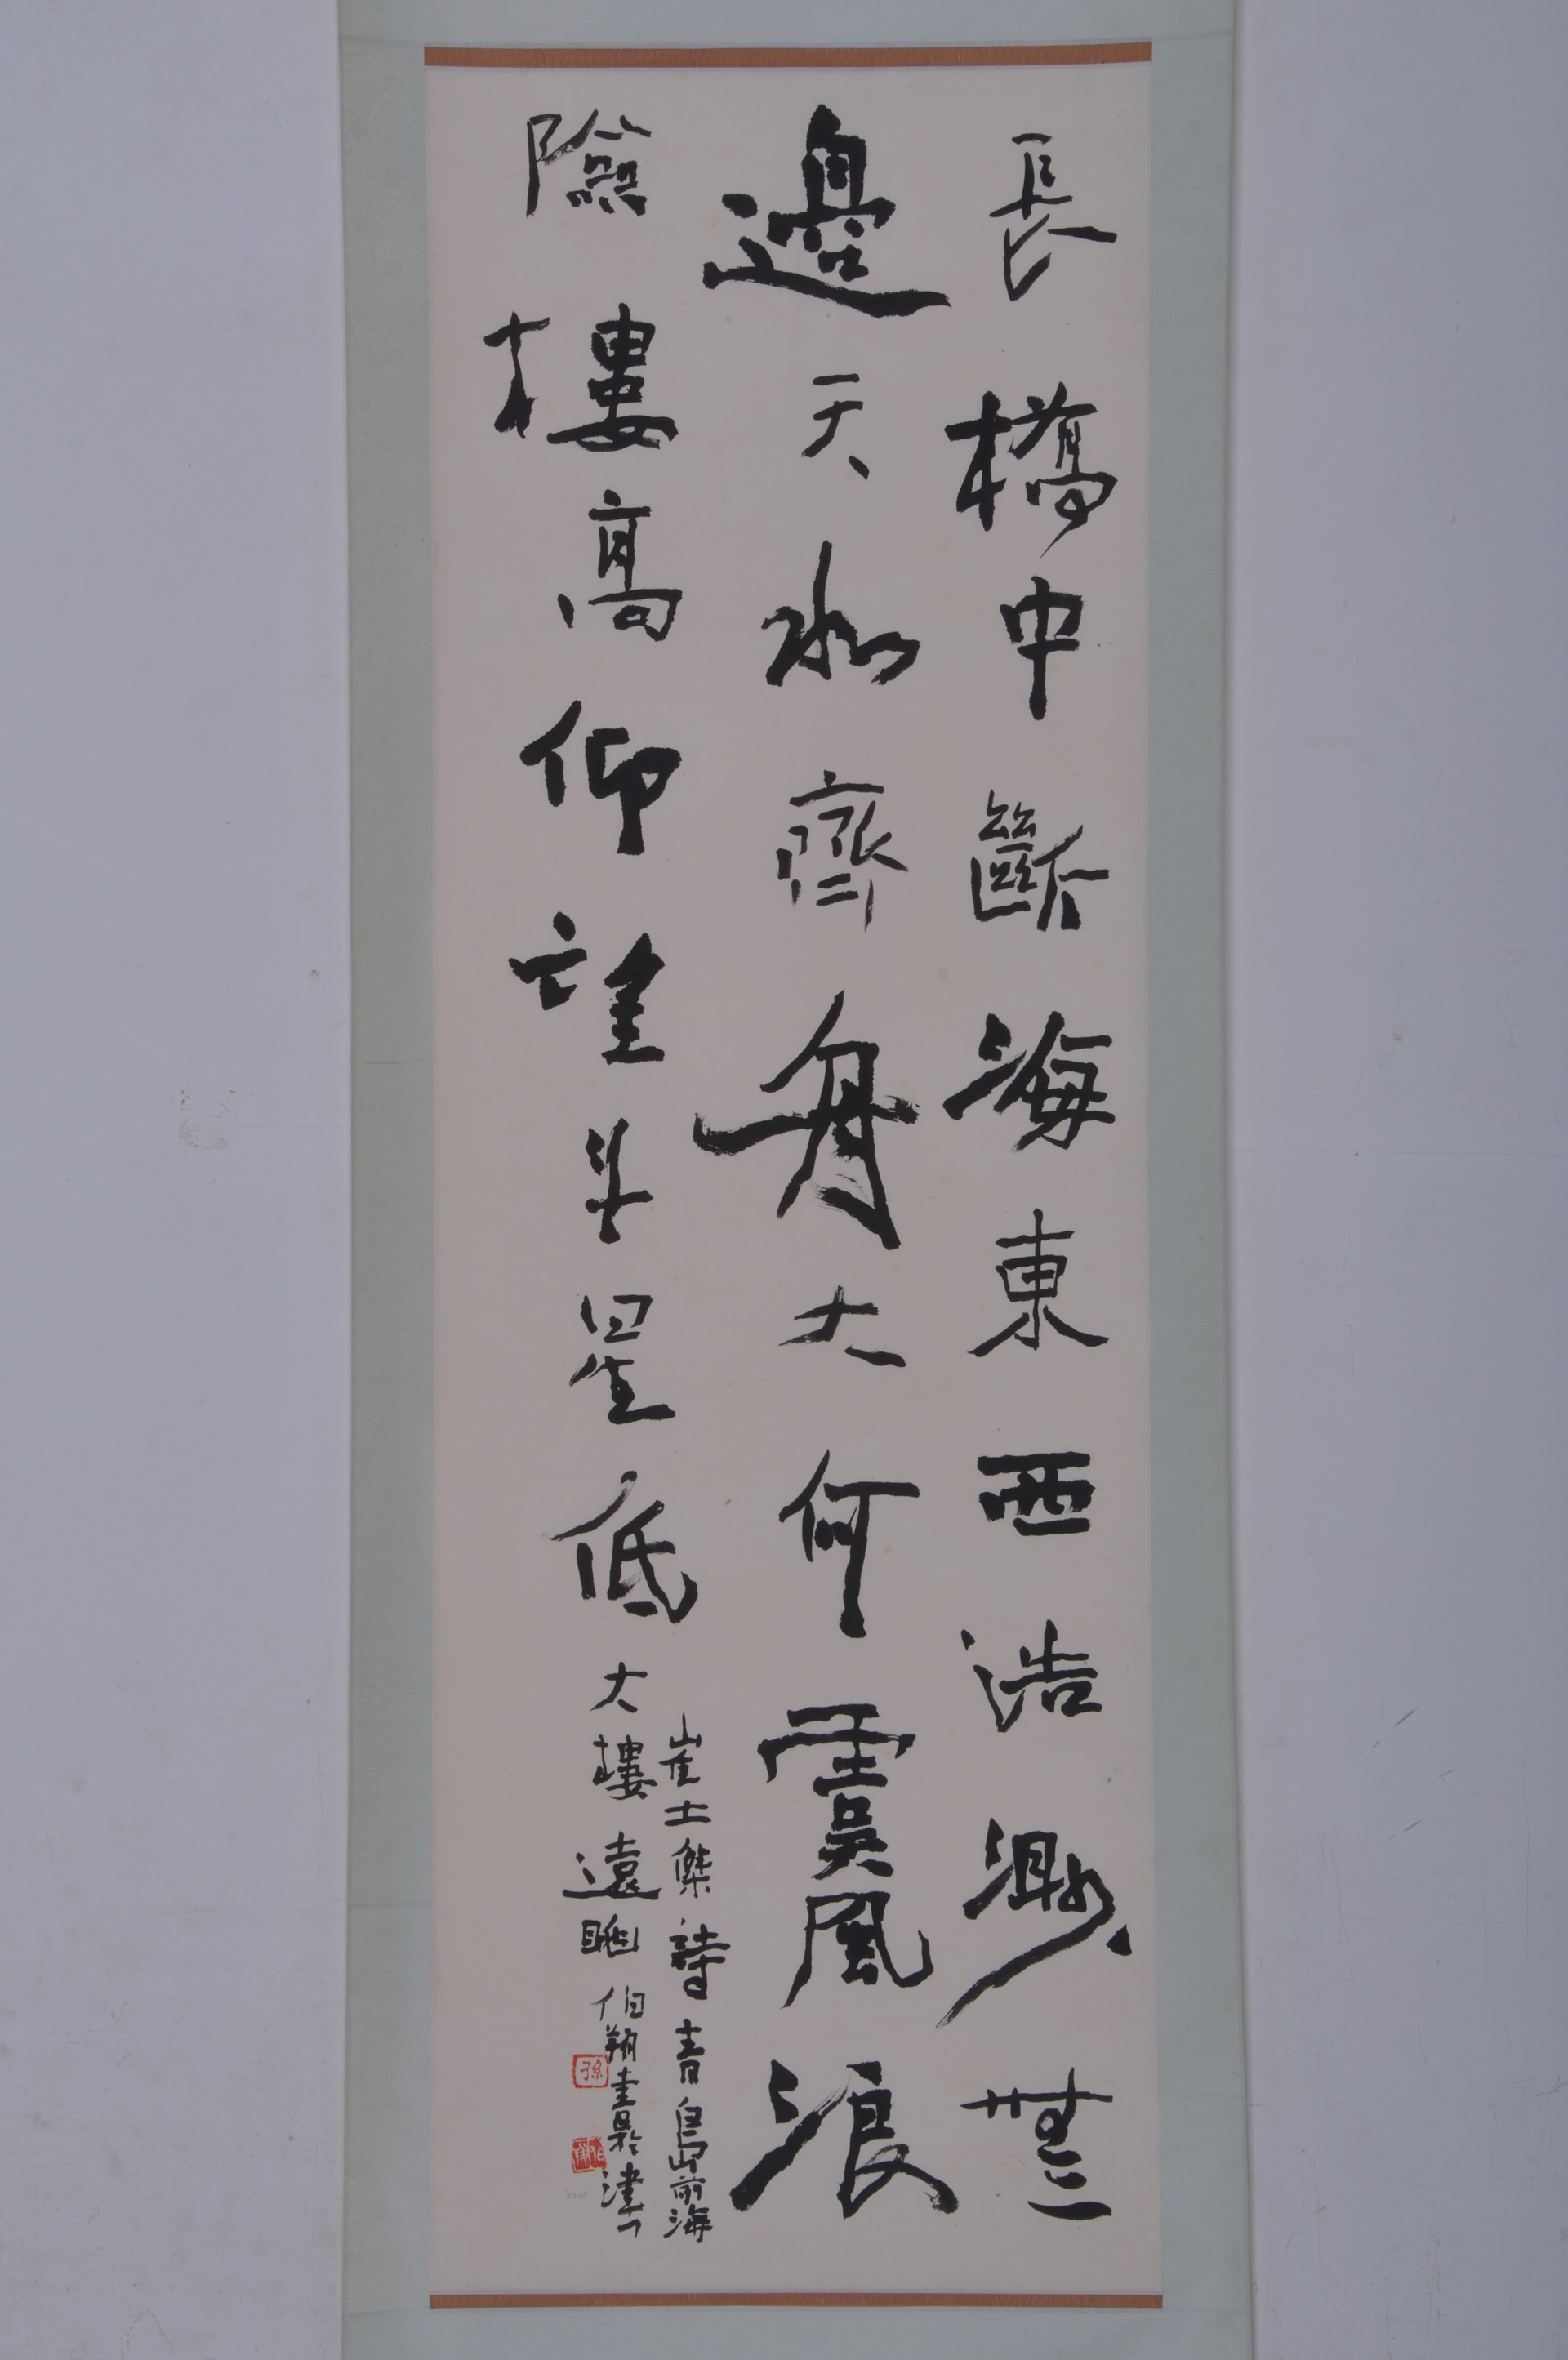 長橋中斷海東西浩渺無
邊天水齊舟大何虞風浪
險樓高仰望斗星低
崔士傑詩青島前海
大樓遠眺伯翔書於津
孫
伯翔